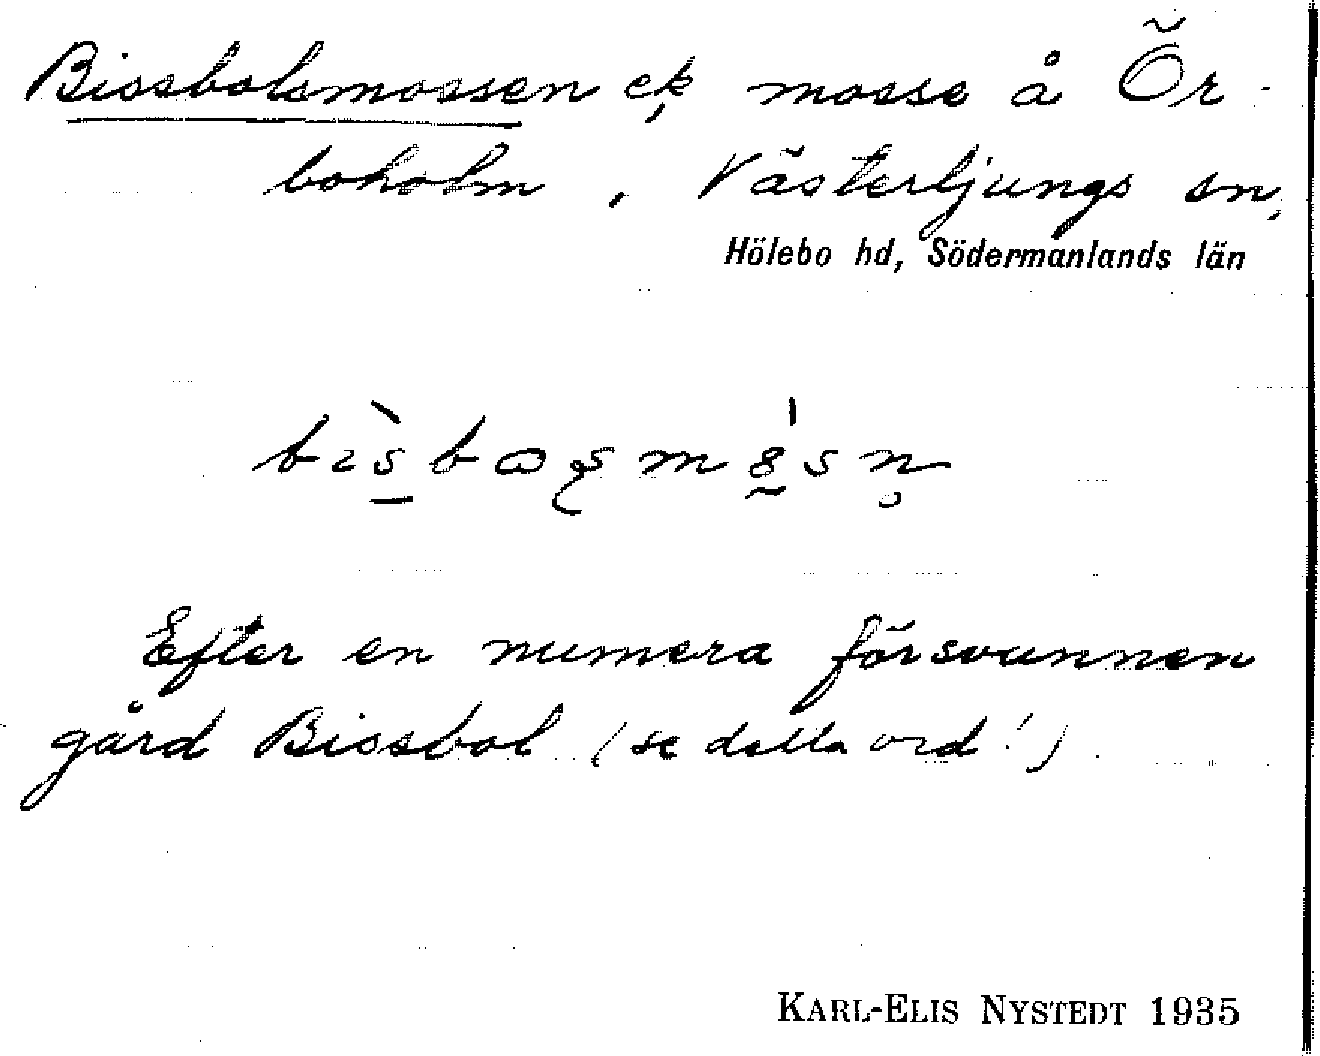 Bissbolsmossen ek mosse å Ör-
boholm, Västerljungs sn,
Hölebo hd, Södermanlands län
Efter en numera försvunnen
gård Bissbol (se detta ord!).
KARL-ELIS NYSTEDT 1935